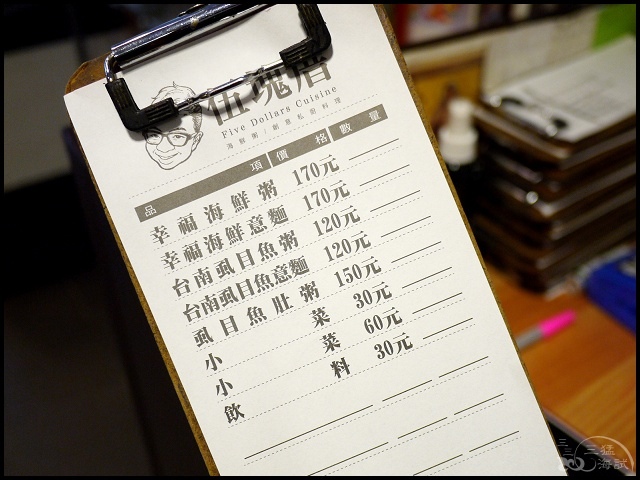 伍塊厝
Five Dollars Cuisine
海鮮粥｜創意私房料理
品項 價格 數量
幸福海鮮粥 170元
幸福海鮮意麵 170元
台南虱目魚粥 120元
台南虱目魚意麵 120元
虱目魚肚粥 150元
小菜 30元
小菜 60元
飲料 30元
三猛
海試